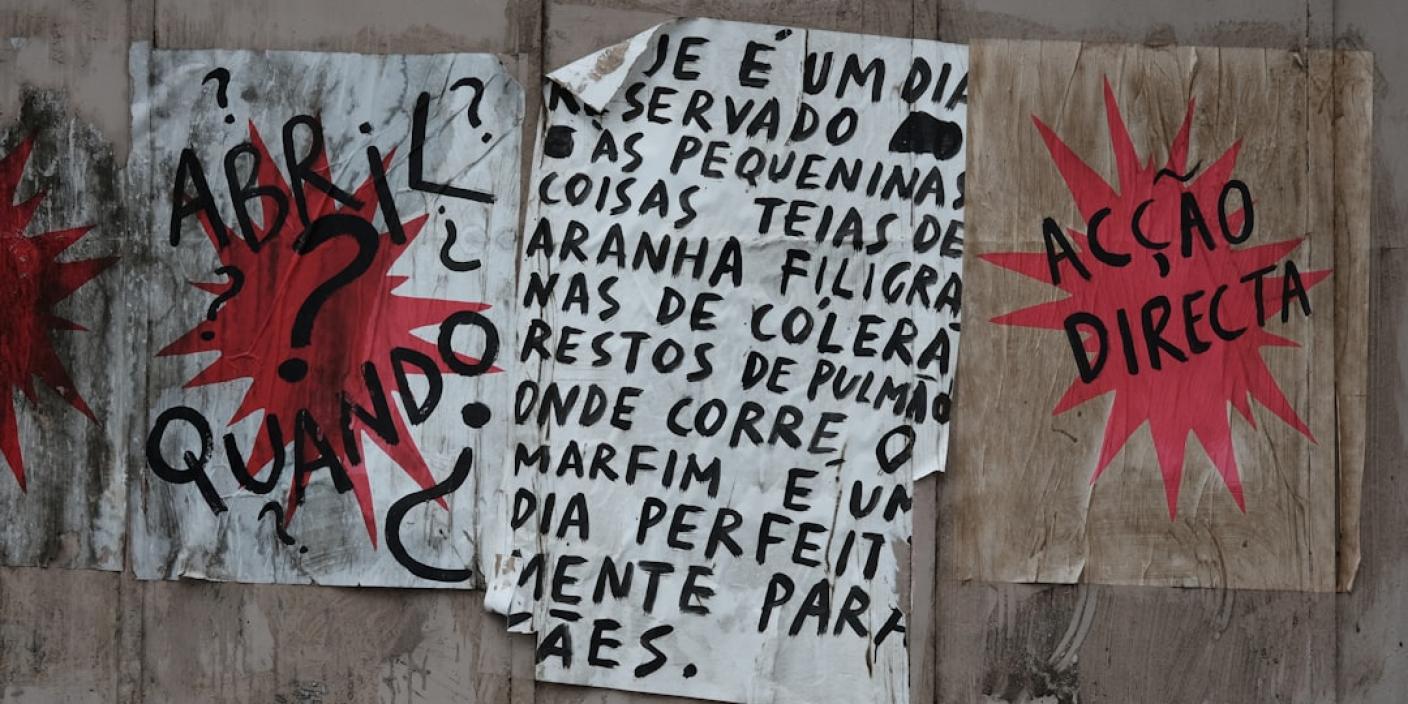 ?
?
ABRIL
?
¿
?
QUANDO
?
¿
JE É UM DIA
RESERVADO
ÀS PEQUENINAS
COISAS TEIAS DE
ARANHA FILIGRA
NAS DE CÓLERA
RESTOS DE PULMÃO
ONDE CORRE O
MARFIM E UM
DIA PERFEIT
MENTE PARA
ÃES.
ACÇÃO
DIRECTA